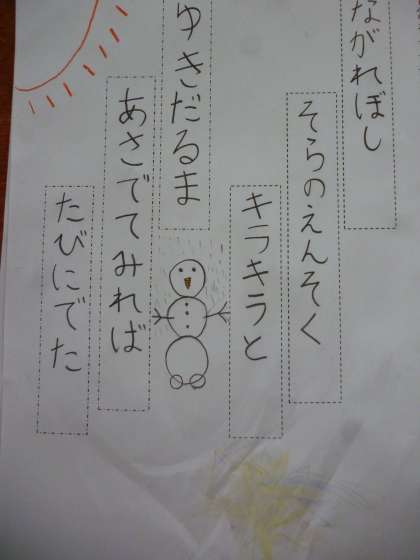 ながれぼし
そらのえんそく
キラキラと
ゆきだるま
あさでてみれば
たびにでた